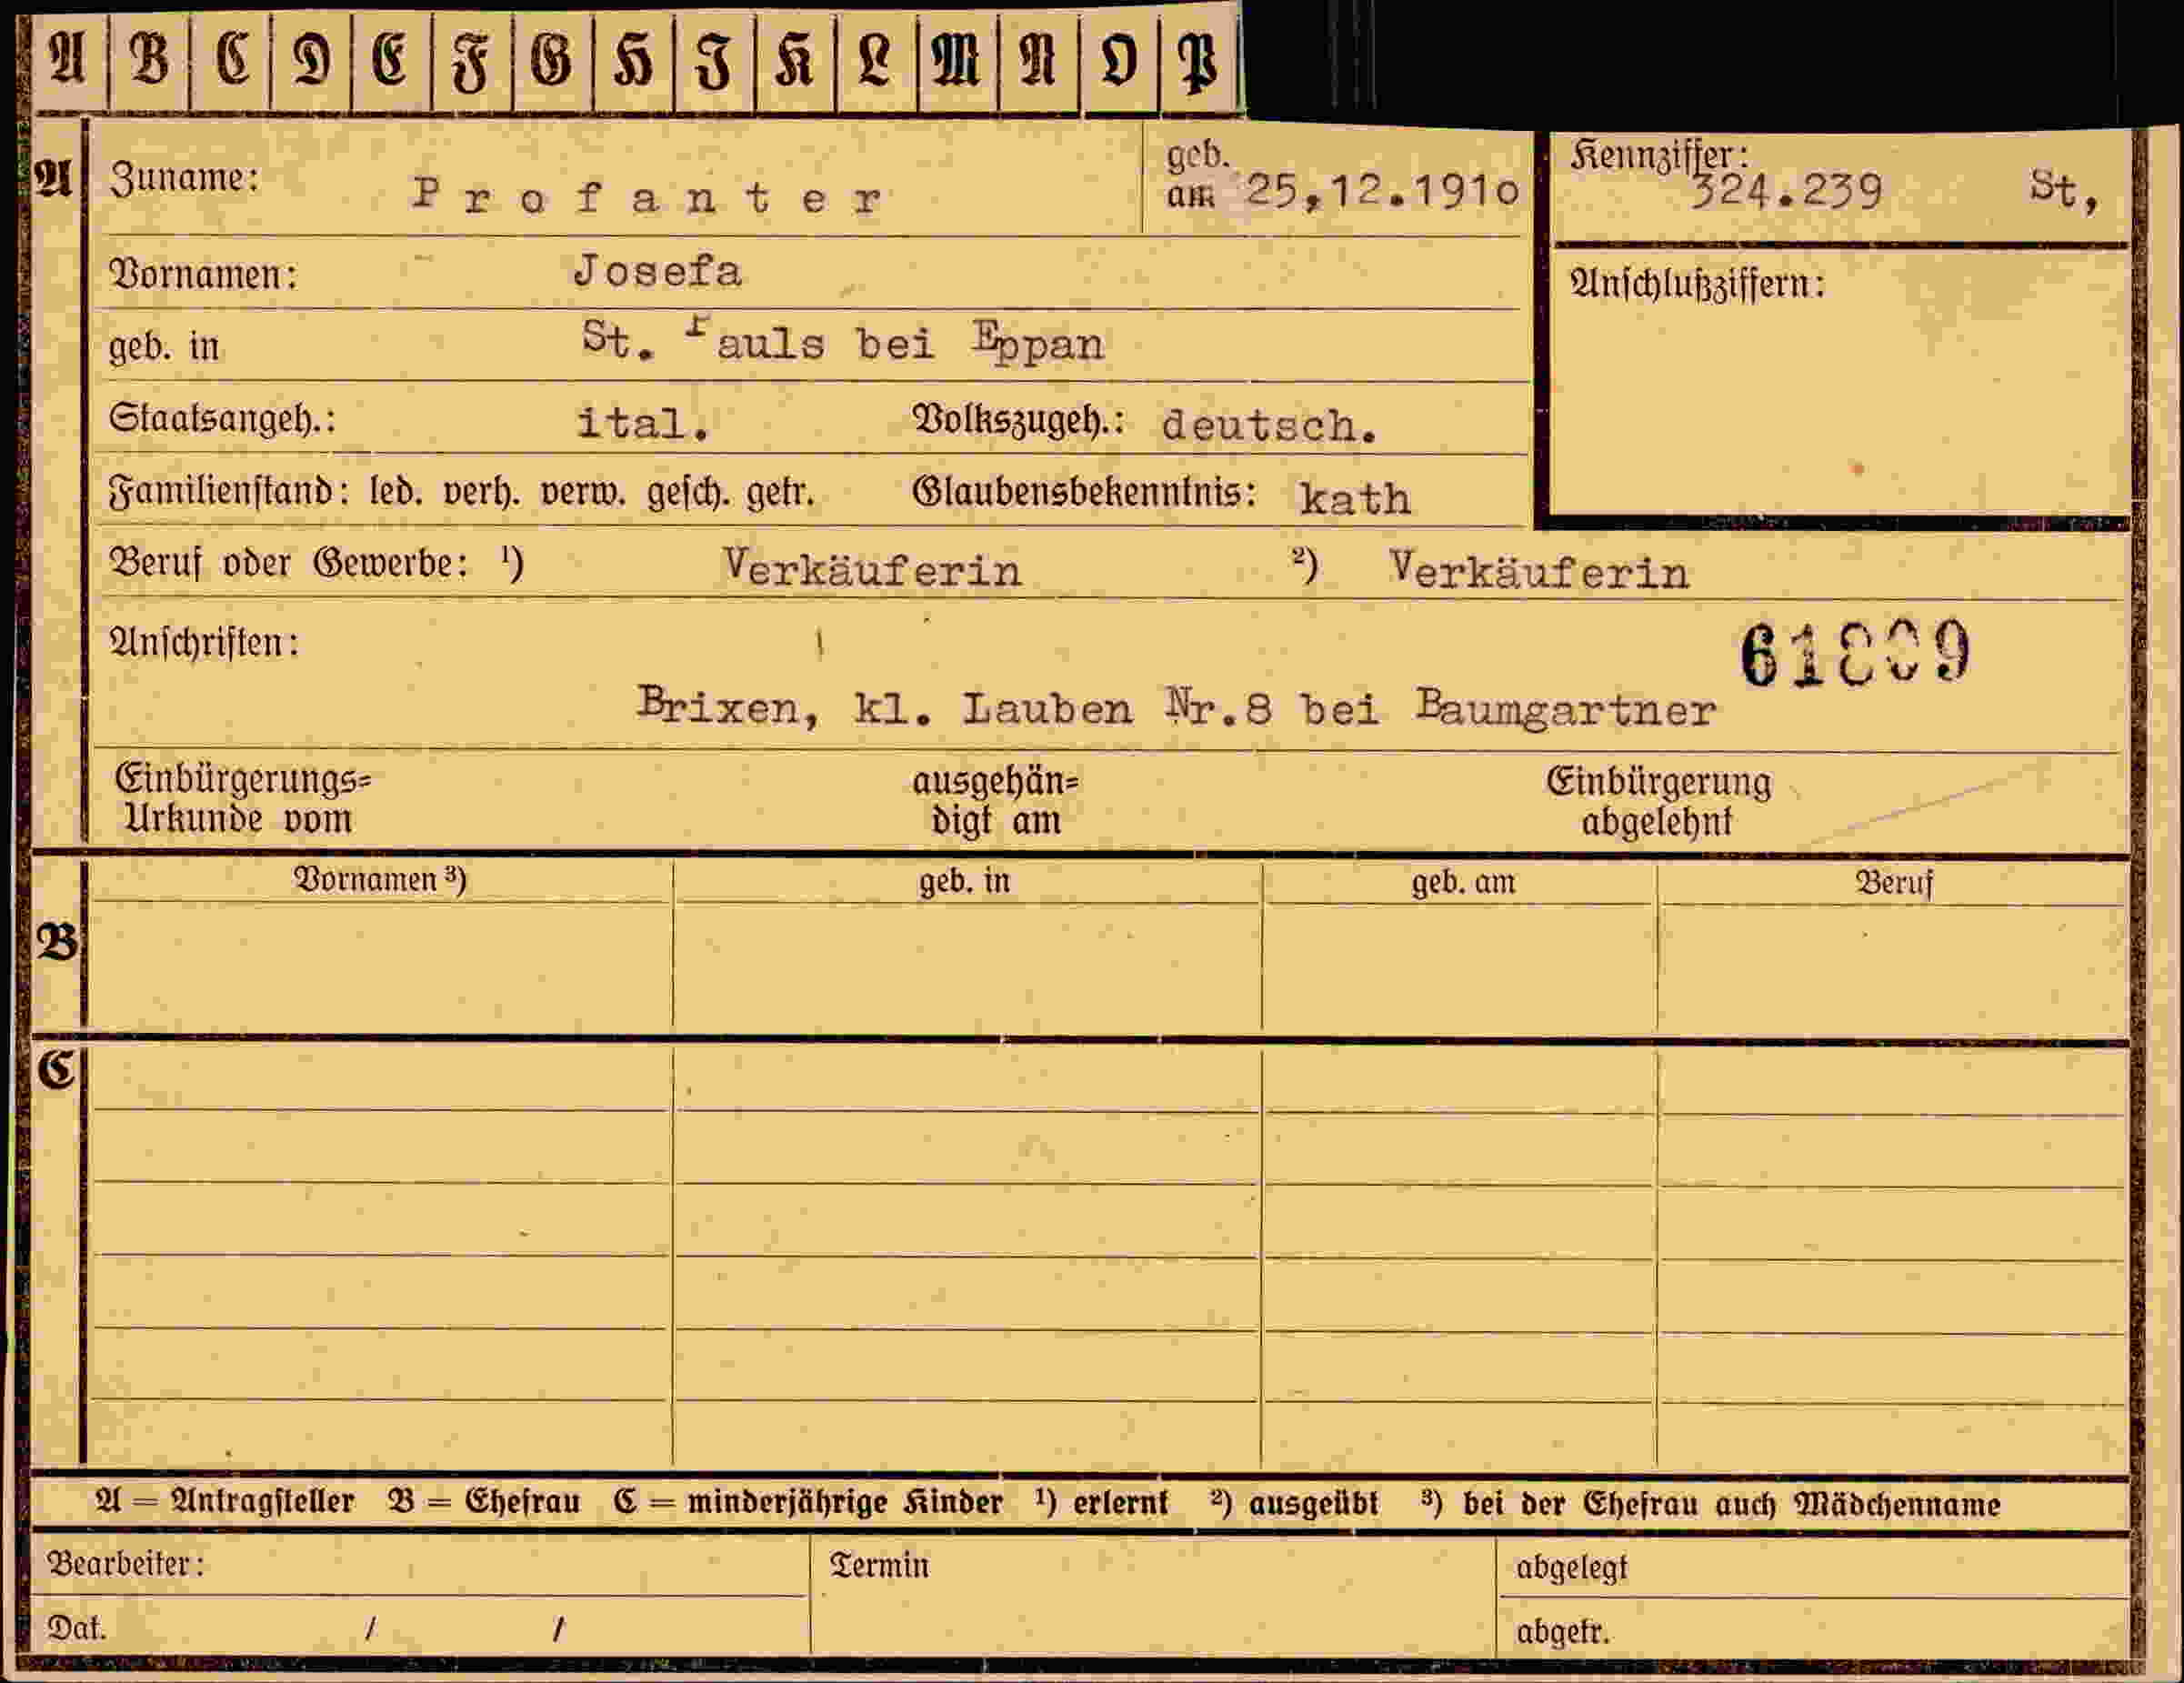 A B C D E F G H I K L M N O P
A Zuname: Profanter geb. am 25,12.1910 Kennziffer: 324.239 St,
Vornamen: Josefa Anschlußziffern:
geb. in St. Pauls bei Eppan
Staatsangeh.: ital. Volkszugeh.: deutsch.
Familienstand: led. verh. verw. gesch. getr. Glaubensbekenntnis: kath
Beruf oder Gewerbe: ¹) Verkäuferin ²) Verkäuferin
Anschriften:
Brixen, kl. Lauben Nr.8 bei Baumgartner
Einbürgerungs= ausgehän= Einbürgerung
Urkunde vom digt am abgelehnt
Vornamen ³) geb. in geb. am Beruf
B
C
A = Antragsteller B = Ehefrau C = minderjährige Kinder ¹) erlernt ²) ausgeübt ³) bei der Ehefrau auch Mädchenname
Bearbeiter: Termin abgelegt
Dat. / / abgetr.